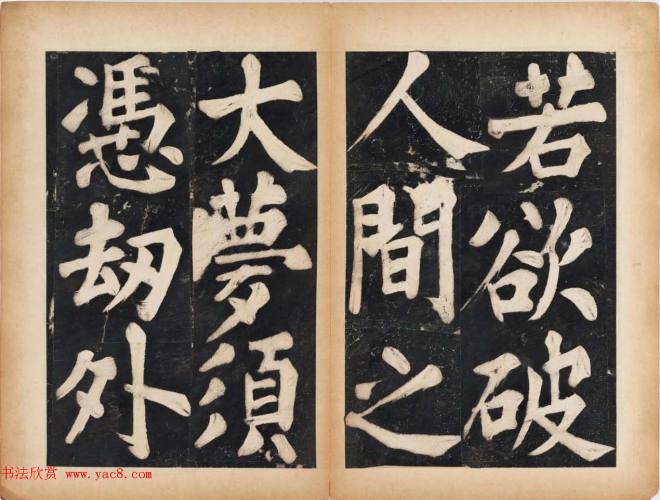 若欲破
人間之
大夢須
憑劫外
书法欣赏 www.yac8.com